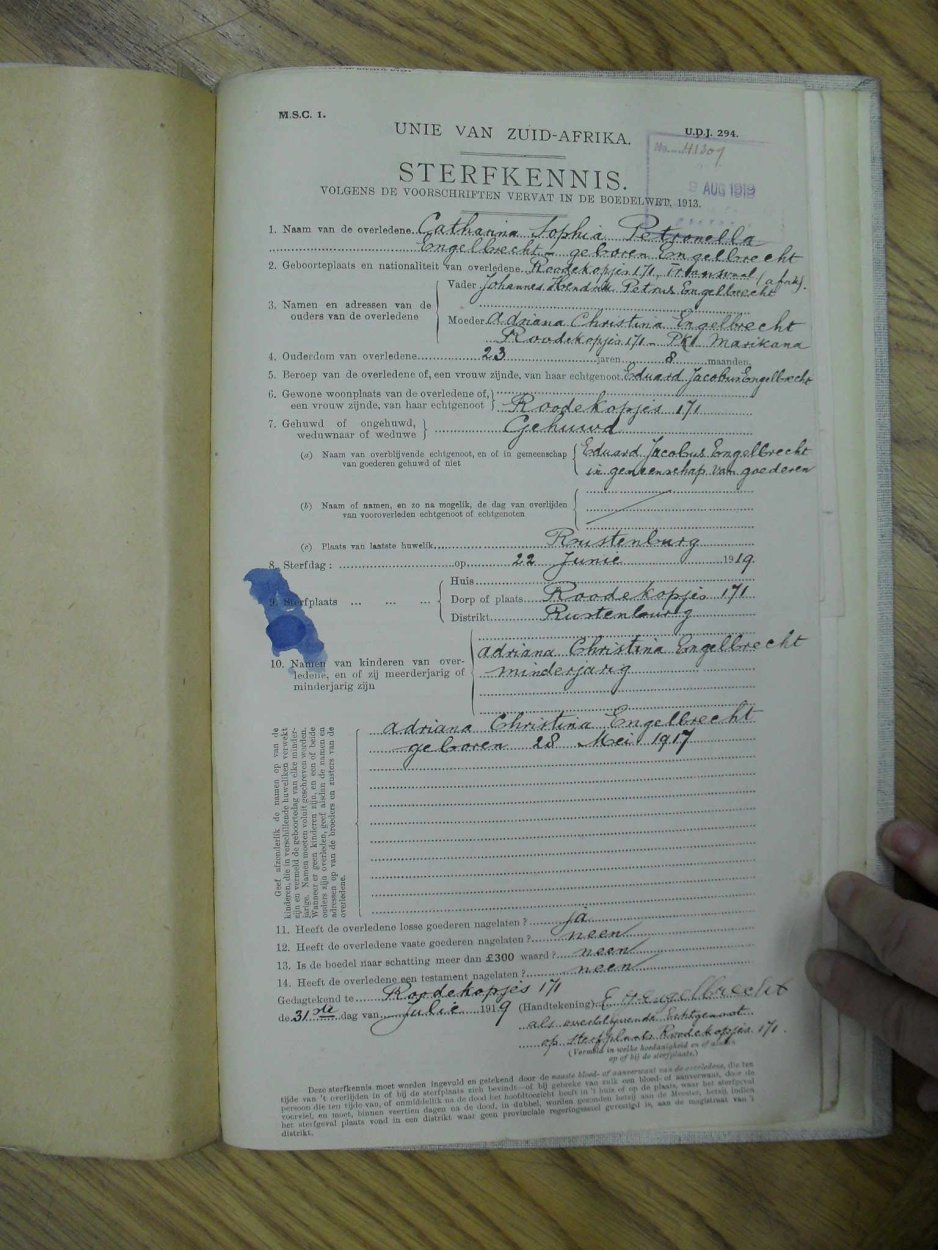 M.S.C. 1.
UNIE VAN ZUID-AFRIKA.
U.D.J. 294.
No. 41309
9 AUG 1919
STERFKENNIS.
VOLGENS DE VOORSCHRIFTEN VERVAT IN DE BOEDELWET, 1913.
1. Naam van de overledene Catharina Sophia Petronella
Engelbrecht - geboren Engelbrecht
2. Geboorteplaats en nationaliteit van overledene Roodekopjes 171, Transvaal (afrik).
3. Namen en adressen van de ouders van de overledene
Vader Johannes Hendrik Petrus Engelbrecht
Moeder Adriana Christina Engelbrecht
Roodekopjes 171 - Pk. Marikana
4. Ouderdom van overledene 23 jaren 8 maanden.
5. Beroep van de overledene of, een vrouw zijnde, van haar echtgenoot Eduard Jacobus Engelbrecht
6. Gewone woonplaats van de overledene of,
een vrouw zijnde, van haar echtgenoot Roodekopjes 171
7. Gehuwd of ongehuwd,
weduwnaar of weduwe Gehuwd
(a) Naam van overblijvende echtgenoot, en of in gemeenschap
van goederen gehuwd of niet
Eduard Jacobus Engelbrecht
in gemeenschap van goederen
(b) Naam of namen, en zo na mogelik, de dag van overlijden
van vooroverleden echtgenoot of echtgenoten
(c) Plaats van laatste huwelik Rustenburg
8. Sterfdag : op 22 Junie 1919
9. Sterfplaats ... ... ...
Huis
Dorp of plaats Roodekopjes 171
Distrikt Rustenburg
10. Namen van kinderen van over-
ledene, en of zij meerderjarig of
minderjarig zijn
Adriana Christina Engelbrecht
minderjarig
Geef afzonderlik de namen op van de
kinderen, die in verschillende huweliken verwekt
zijn en vermeld de geboortedag van elke minder-
jarige. Namen moeten voluit geschreven worden.
Wanneer er geen kinderen zijn, en een of beide
ouders zijn overleden, geef alsdan de namen en
adressen op van de broeders en zusters van de
overledene.
Adriana Christina Engelbrecht
geboren 28 Mei 1917
11. Heeft de overledene losse goederen nagelaten ? ja
12. Heeft de overledene vaste goederen nagelaten ? neen
13. Is de boedel naar schatting meer dan £300 waard ? neen
14. Heeft de overledene een testament nagelaten ? neen
Gedagtekend te Roodekopjes 171
de 31ste dag van Julie 1919 (Handtekening) E J Engelbrecht
als overblijvende Echtgenoot
op sterfplaats Roodekopjes 171.
(Vermeld in welke hoedanigheid en of anders
op of bij de sterfplaats.)
Deze sterfkennis moet worden ingevuld en getekend door de naaste bloed- of aanverwant van de overledene, die ten
tijde van 't overlijden in of bij de sterfplaats zich bevindt—of bij gebreke van zulk een bloed- of aanverwant, door de
persoon die ten tijde van, of onmiddellik na de dood het hoofdtoezicht heeft in 't huis of op de plaats, waar het sterfgeval
voorviel, en moet, binnen veertien dagen na de dood, in dubbel, worden gezonden hetzij aan de Meester, hetzij, indien
het sterfgeval plaats vond in een distrikt waar geen provinciale regeringszetel gevestigd is, aan de magistraat van 't
distrikt.